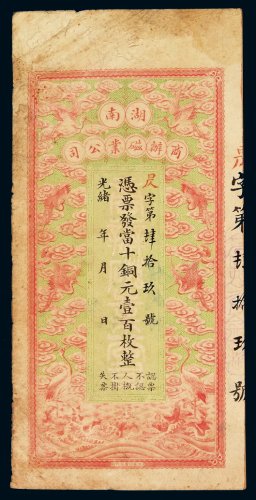 湖南
商辦礦業公司
昃字第肆拾玖號
憑票發當十銅元壹百枚整
光緒 年 月 日
認票不認人概不掛失票
字第肆拾玖號